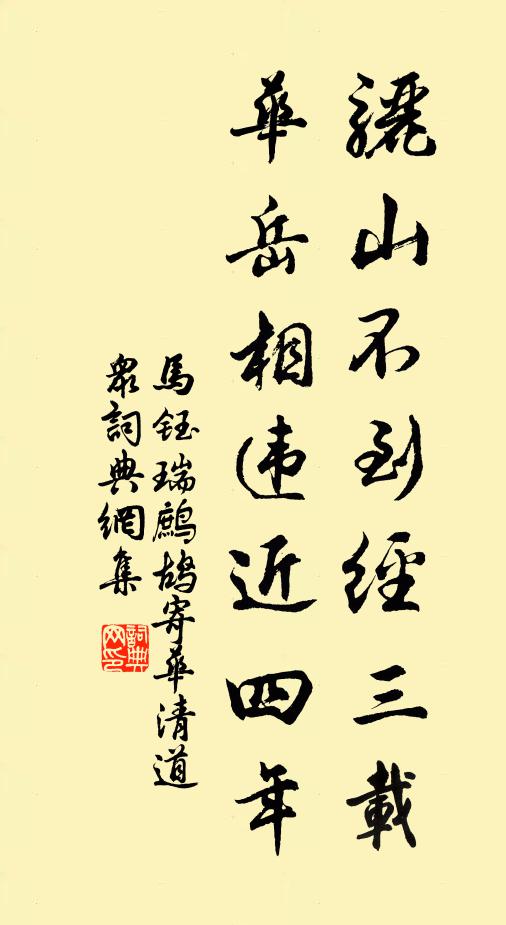 驪山不到經三載
華岳相违近四年
馬鈺瑞鷓鴣寄華清道
眾詞典網集
詞典網印